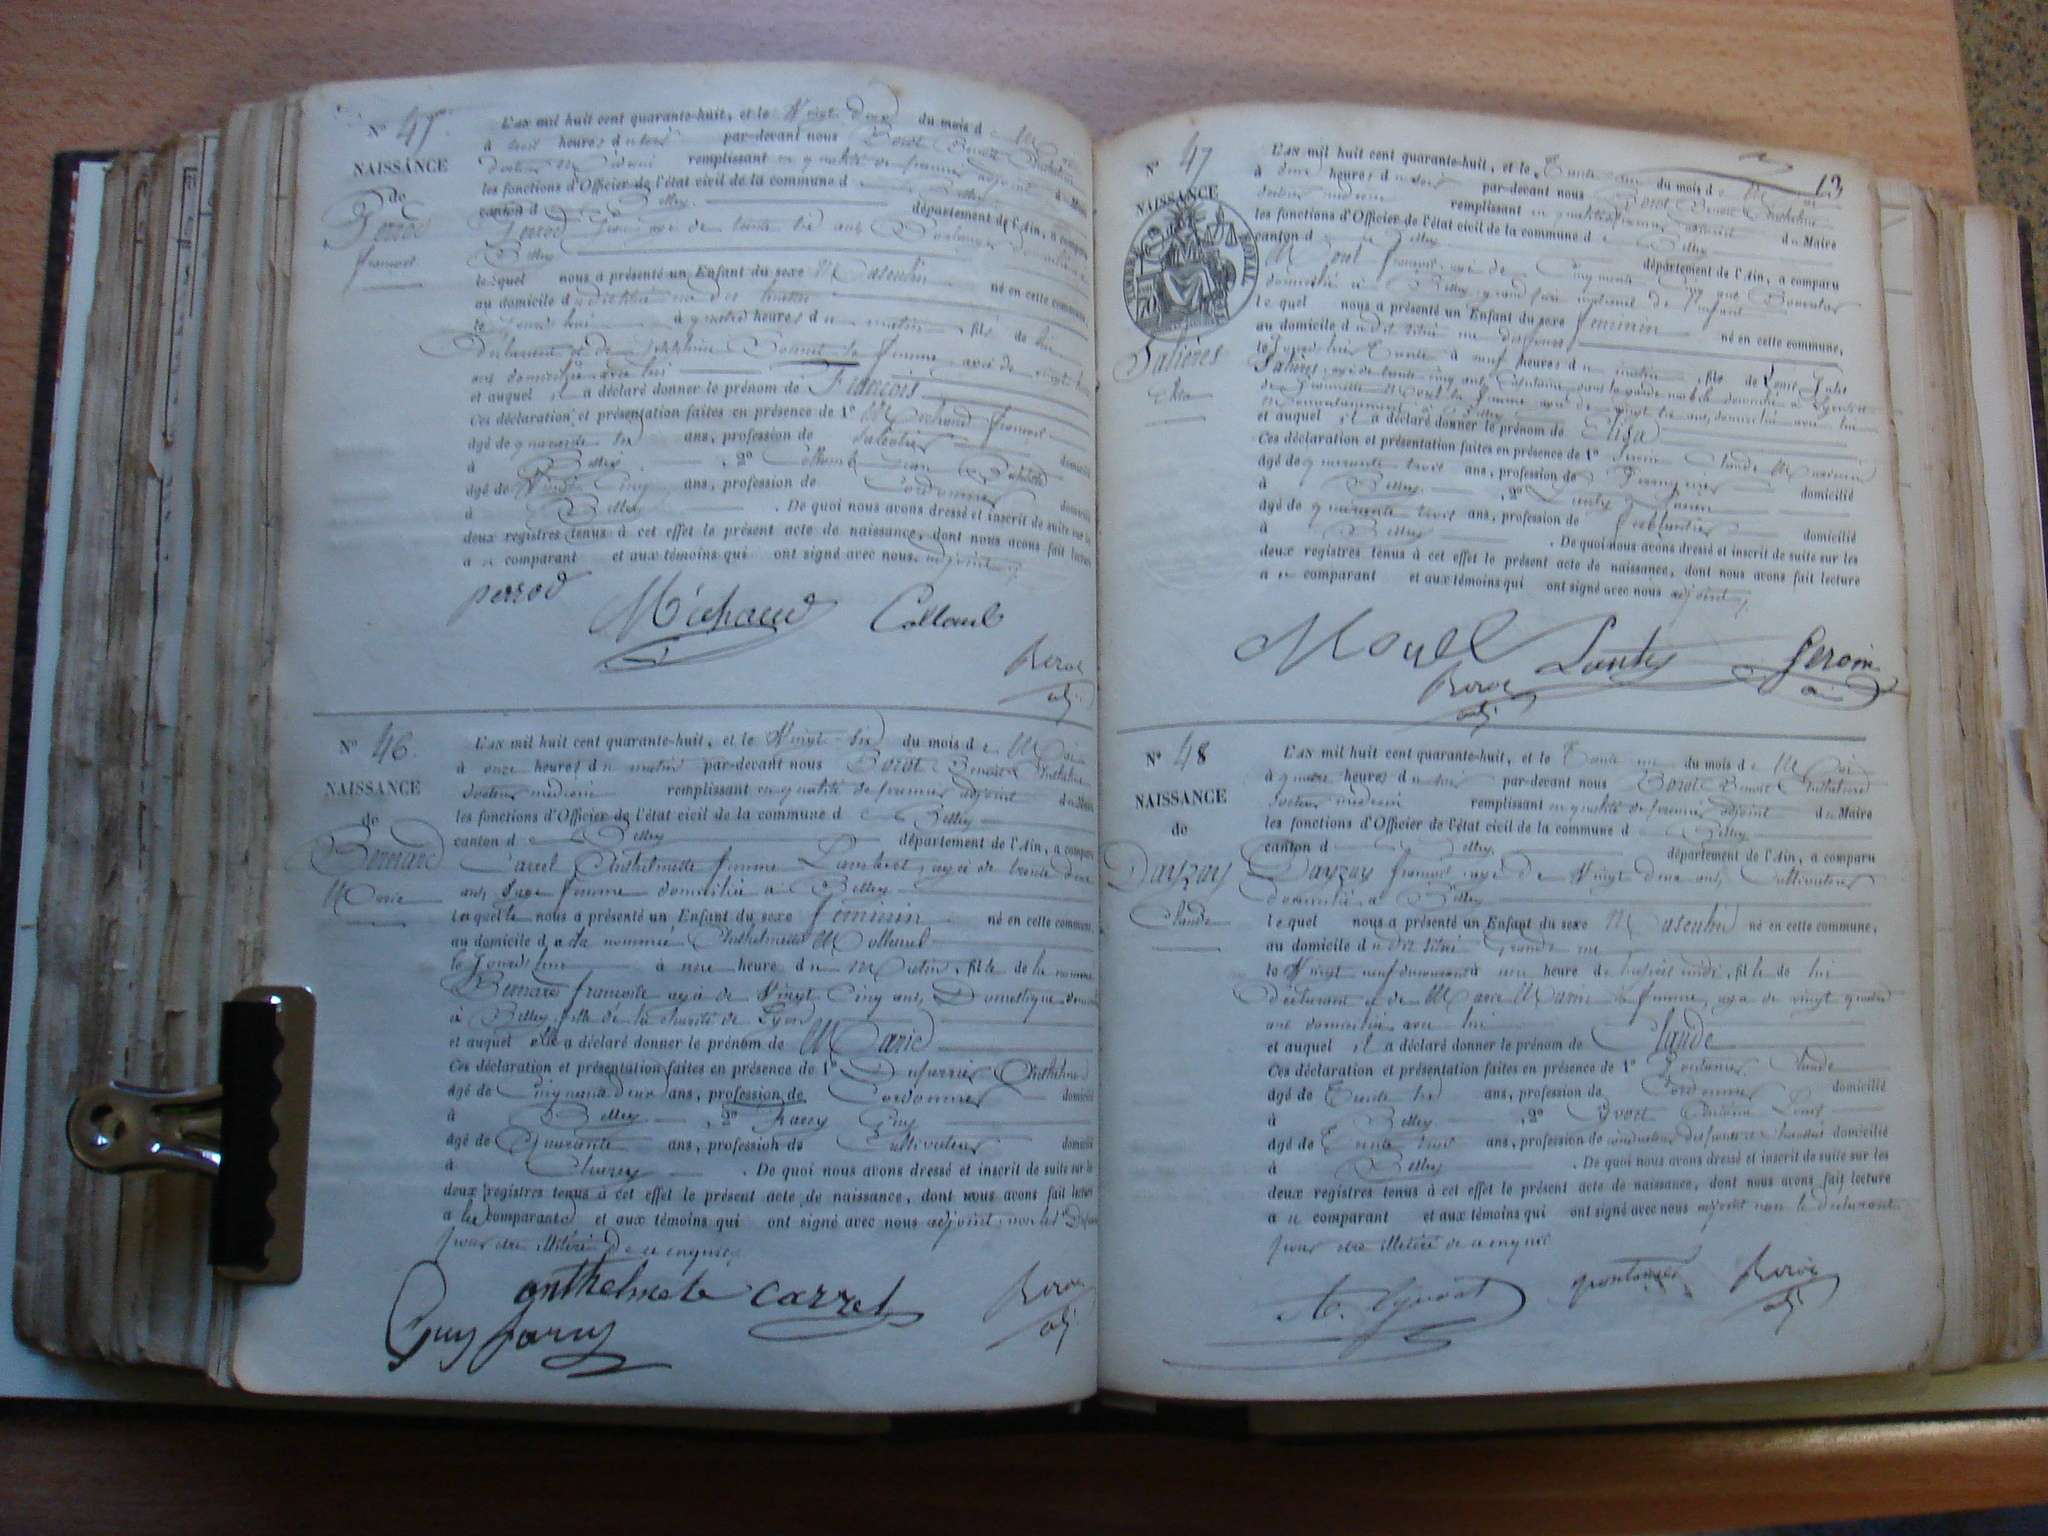 N° 45
NAISSANCE
de
Perrod
françois
L'AN mil huit cent quarante-huit, et le Vingt deux du mois de Mai
à heures du par-devant nous Borot Benoit Anthelme
docteur médecin remplissant en qualité de premier adjoint du Maire
les fonctions d'Officier de l'état civil de la commune de Belley
canton de Belley département de l'Ain, a comparu
Perrod âgé de trente six ans, Boulanger domicilié à
Belley
lequel nous a présenté un Enfant du sexe Masculin né en cette commune,
au domicile du
le jourd'hui à quatre heures du matin, fils de lui
Déclarant et de Bonnet sa femme, agée de vingt
ans domiciliée avec lui
et auquel il a déclaré donner le prénom de François
Ces déclaration et présentation faites en présence de 1° Michaud françois
âgé de quarante six ans, profession de Sabotier domicilié
à Belley 2° Collomb Jean Baptiste
âgé de cinq ans, profession de Cordonnier domicilié
à Belley . De quoi nous avons dressé et inscrit de suite sur les
deux registres tenus à cet effet le présent acte de naissance, dont nous avons fait lecture
a u comparant et aux témoins qui ont signé avec nous adjoint
perrod Michaud Collomb
Borot
adj.
N° 46.
NAISSANCE
de
Bernard
Marie
L'AN mil huit cent quarante-huit, et le Vingt-six du mois de Mai
à onze heures du matin par-devant nous Borot Benoit Anthelme
docteur médecin remplissant en qualité de premier adjoint du Maire
les fonctions d'Officier de l'état civil de la commune de Belley
canton de Belley département de l'Ain, a comparu
Carrel Anthelmette femme Lambert, agée de trente deux
ans, Sage femme domiciliée à Belley
laquelle nous a présenté un Enfant du sexe féminin né en cette commune,
au domicile de la nommée Anthelmette
le Jourd'hui à une heure du Matin, fille de la nommée
Bernard françoise agée de Vingt Cinq ans, Domestique
à Belley, fille de la charité de Lyon
et auquel elle a déclaré donner le prénom de Marie
Ces déclaration et présentation faites en présence de 1° Duferrier Anthelme
âgé de Cinquante deux ans, profession de Cordonnier domicilié
à Belley 2° Farry Guy
âgé de Quarante ans, profession de Cultivateur domicilié
à . De quoi nous avons dressé et inscrit de suite sur les
deux registres tenus à cet effet le présent acte de naissance, dont nous avons fait lecture
a la comparante et aux témoins qui ont signé avec nous adjoint, non
pour être illitéré de ce enquis
anthelmete carrel
Guy farry
Borot
adj.
13
N° 47
NAISSANCE
TIMBRE ROYAL
Salières
Elisa
L'AN mil huit cent quarante-huit, et le Trente du mois de Mai
à deux heures du soir par-devant nous Borot Benoit Anthelme
docteur médecin remplissant en qualité de premier adjoint du Maire
les fonctions d'Officier de l'état civil de la commune de Belley
canton de Belley département de l'Ain, a comparu
françois, agé de Cinquante
domicilié à Belley, grand père maternel de l'enfant
lequel nous a présenté un Enfant du sexe féminin né en cette commune,
au domicile du dit
le Jourd'hui à neuf heures du matin, fille de Louis
Salières, agé de trente cinq ans, domicilié à Lyon
de sa femme agée de vingt six ans, domiciliée avec lui
et auquel il a déclaré donner le prénom de Elisa
Ces déclaration et présentation faites en présence de 1° Claude
âgé de quarante trois ans, profession de domicilié
à Belley 2°
âgé de quarante trois ans, profession de ferblantier domicilié
à Belley . De quoi nous avons dressé et inscrit de suite sur les
deux registres tenus à cet effet le présent acte de naissance, dont nous avons fait lecture
a u comparant et aux témoins qui ont signé avec nous adjoint
Borot
adj.
N° 48
NAISSANCE
de
Dayzay
Claude
L'AN mil huit cent quarante-huit, et le Trente un du mois de Mai
à quatre heures du soir par-devant nous Borot Benoit Anthelme
docteur médecin remplissant en qualité de premier adjoint du Maire
les fonctions d'Officier de l'état civil de la commune de Belley
canton de Belley département de l'Ain, a comparu
Dayzay françois, agé de Vingt deux ans, Cultivateur
domicilié à Belley
lequel nous a présenté un Enfant du sexe Masculin né en cette commune,
au domicile du dit situé Grande rue
le Vingt neuf du courant à une heure de l'après midi, fils de lui
déclarant et de Marie sa femme, agée de vingt quatre
ans domiciliée avec lui
et auquel il a déclaré donner le prénom de Claude
Ces déclaration et présentation faites en présence de 1° Claude
âgé de Trente six ans, profession de Cordonnier domicilié
à Belley 2° Antoine Louis
âgé de Trente trois ans, profession de conducteur des ponts et chaussées domicilié
à Belley . De quoi nous avons dressé et inscrit de suite sur les
deux registres tenus à cet effet le présent acte de naissance, dont nous avons fait lecture
a u comparant et aux témoins qui ont signé avec nous adjoint non le déclarant
pour être illitéré de ce enquis
Borot
adj.